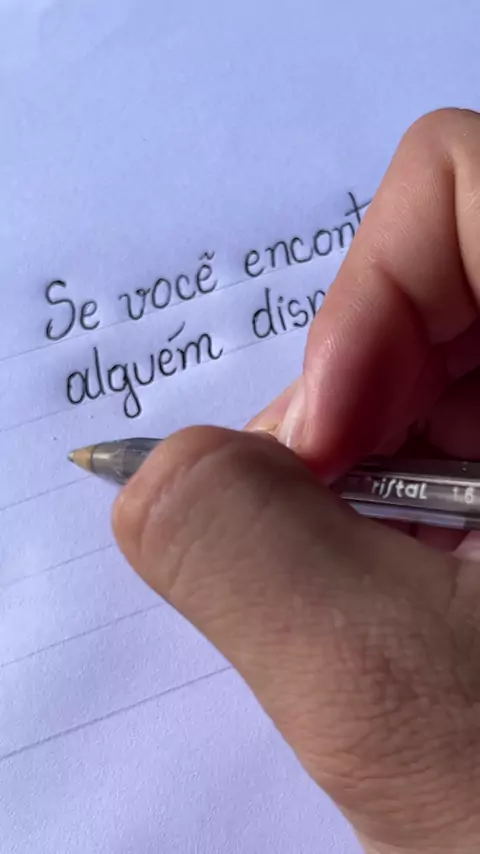 Se você encont
alguém disp
ristal 1.6